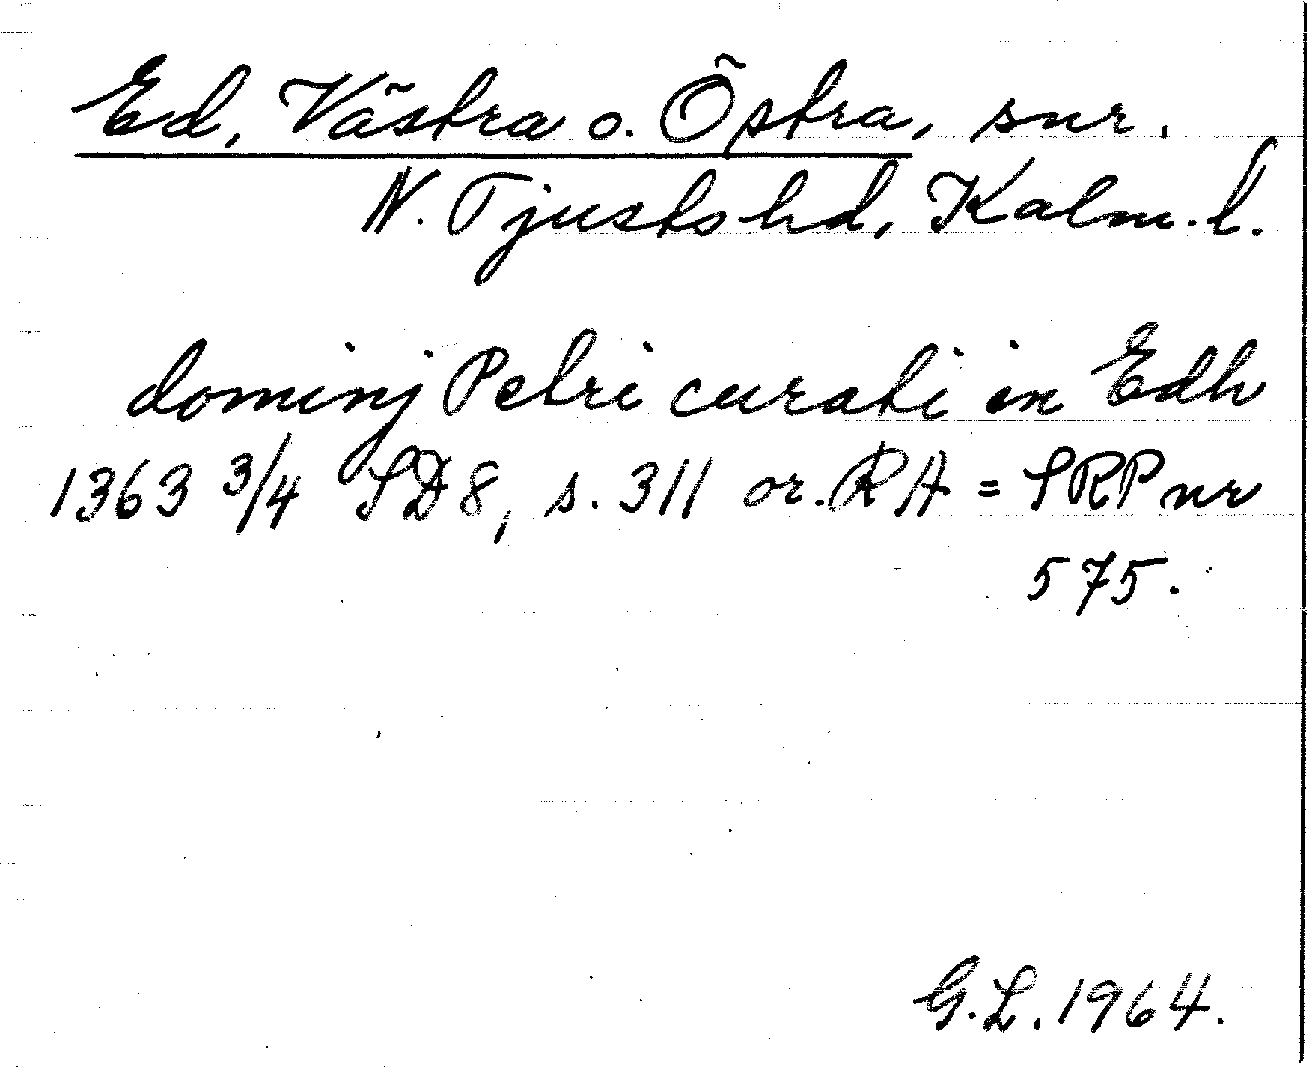 Ed, Västra o. Östra, snr.
N. Tjusts hd, Kalm. l.
dominj Petri curati in Edh
1363 3/4 SD 8, s. 311 or. RA = SRP nr
575.
G.L. 1964.